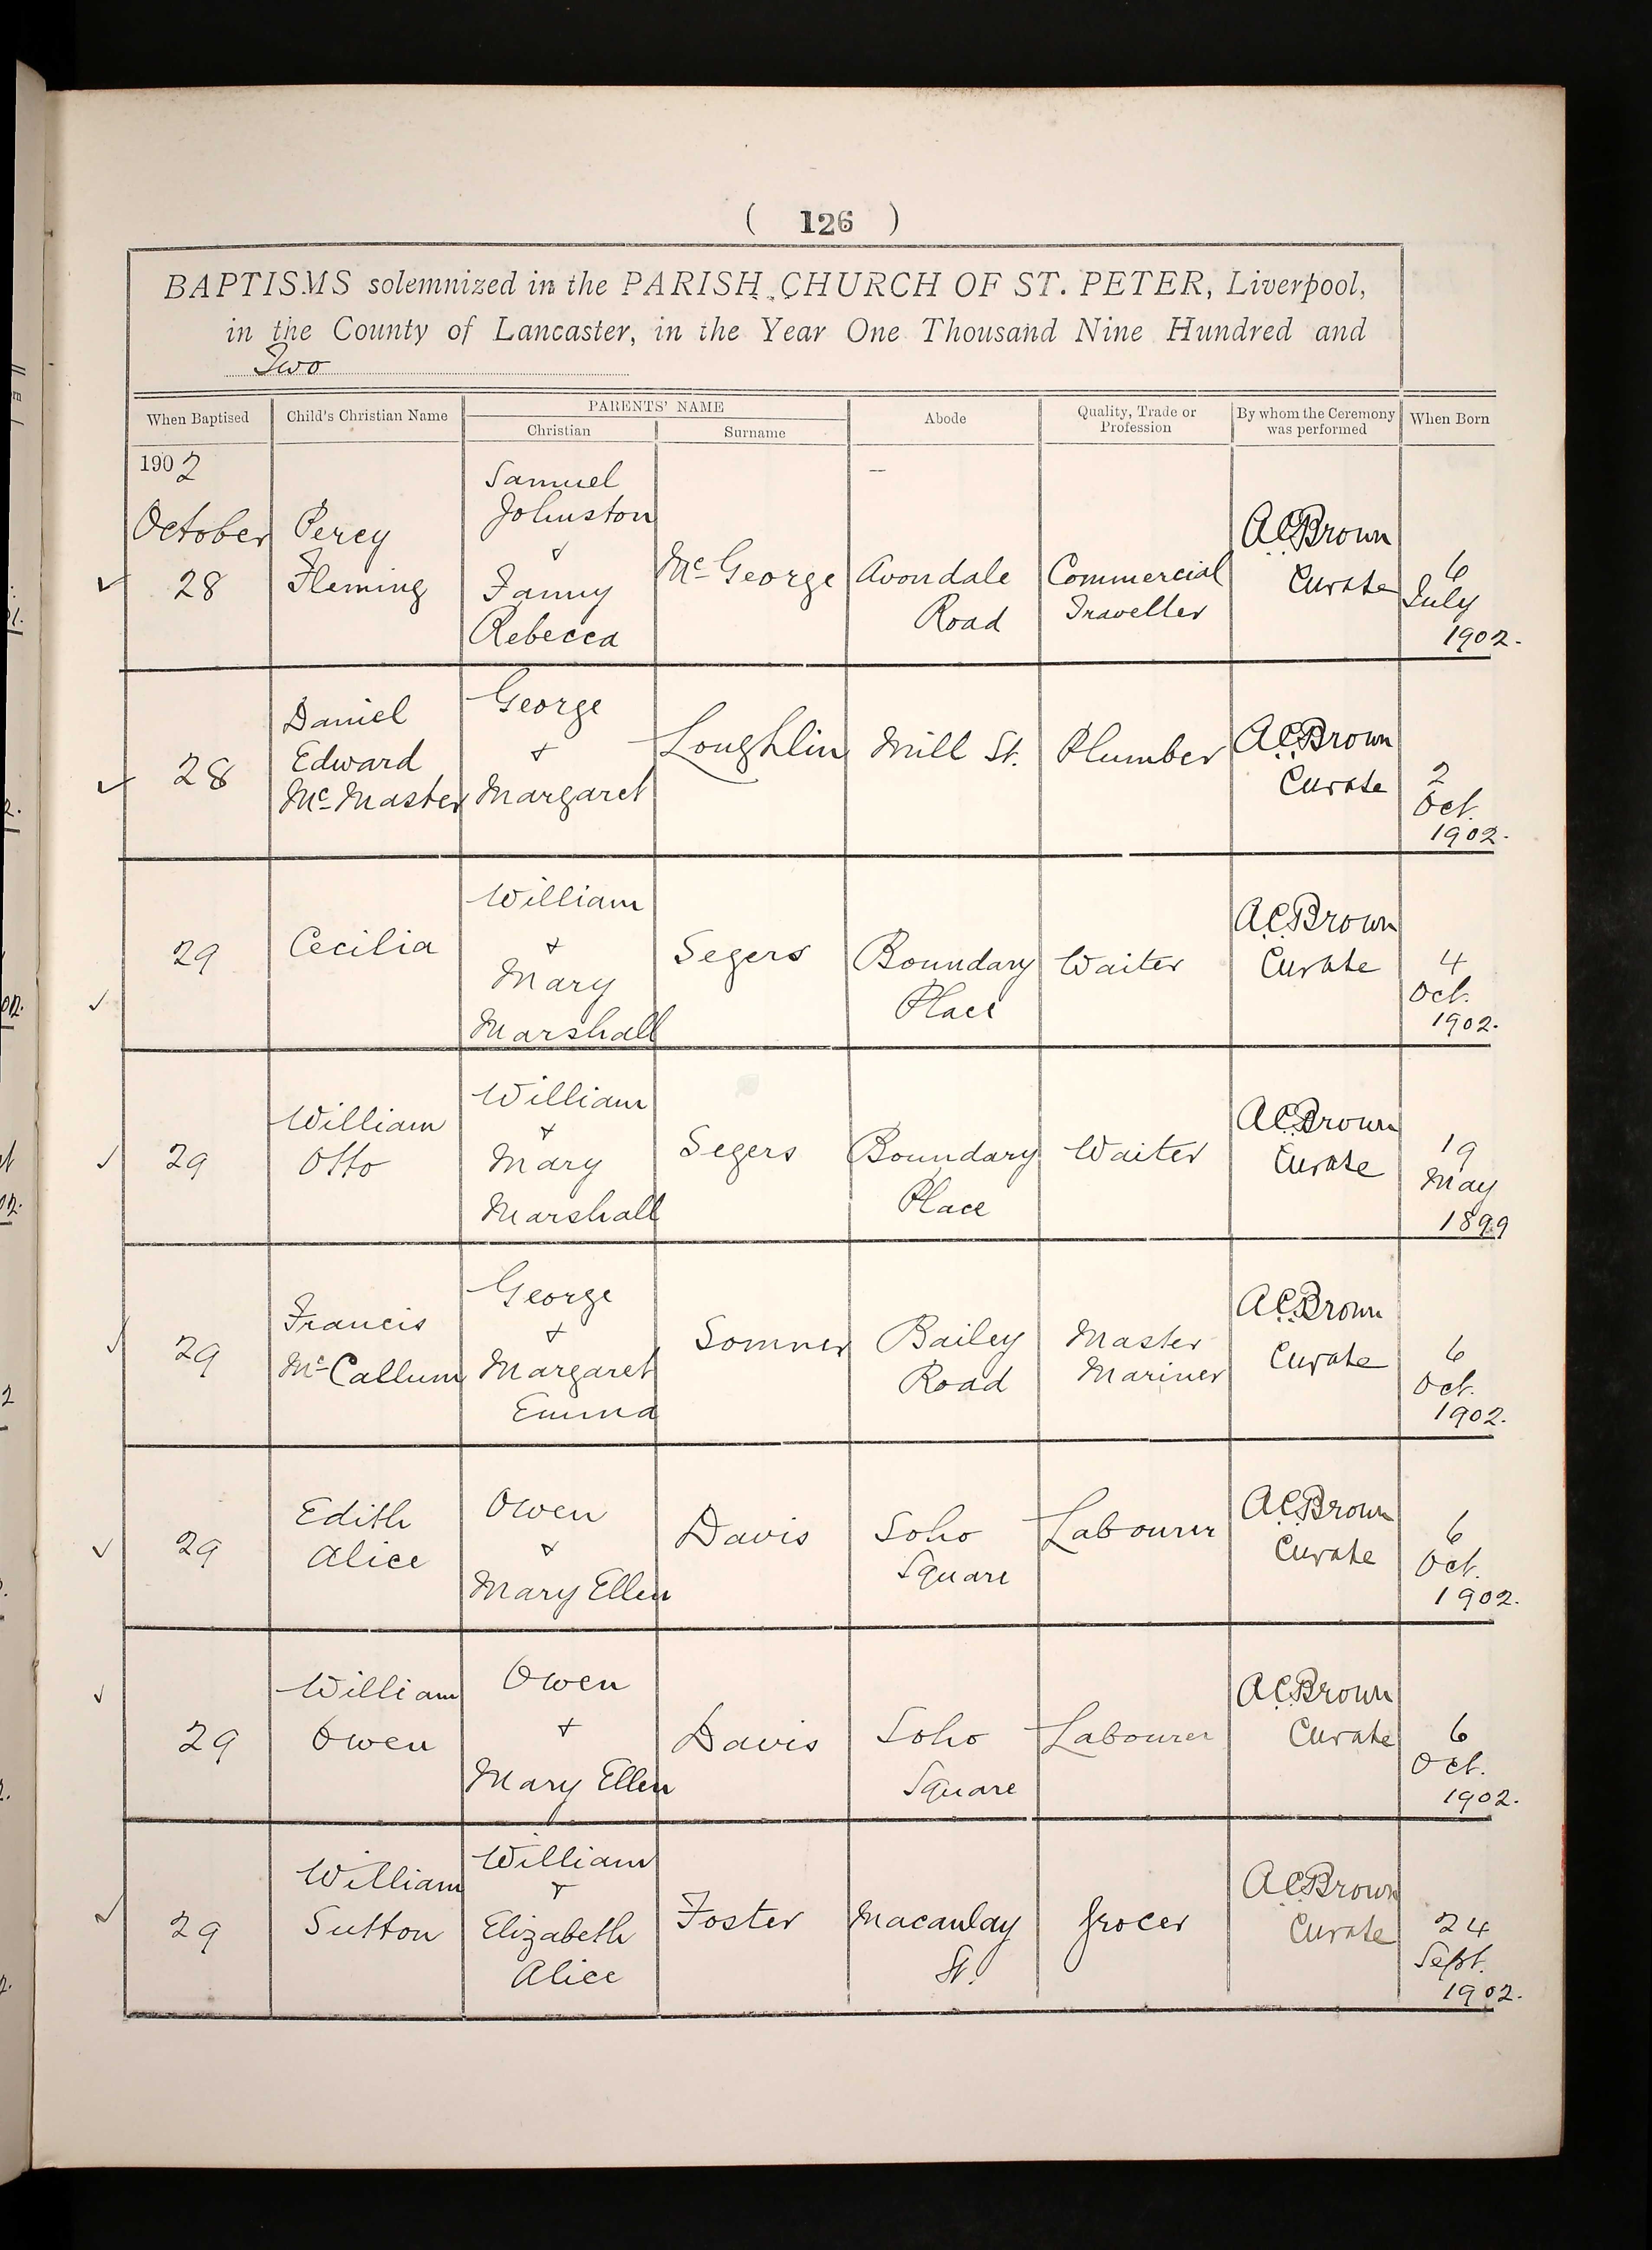 ( 126 )
BAPTISMS solemnized in the PARISH CHURCH OF ST. PETER, Liverpool,
in the County of Lancaster, in the Year One Thousand Nine Hundred and
Two
When Baptised
Child's Christian Name
PARENTS' NAME
Christian
Surname
Abode
Quality, Trade or
Profession
By whom the Ceremony
was performed
When Born
1902
October
28
Percy
Fleming
Samuel
Johnston
&
Fanny
Rebecca
McGeorge
Avondale
Road
Commercial
Traveller
A.C.Brown
Curate
6
July
1902.
28
Daniel
Edward
McMaster
George
&
Margaret
Loughlin
Mill St.
Plumber
A.C.Brown
Curate
2
Oct.
1902.
29
Cecilia
William
&
Mary
Marshall
Segers
Boundary
Place
Waiter
A.C.Brown
Curate
4
Oct.
1902.
29
William
Otto
William
&
Mary
Marshall
Segers
Boundary
Place
Waiter
A.C.Brown
Curate
19
May
1899
29
Francis
McCallum
George
&
Margaret
Emma
Somner
Bailey
Road
Master
Mariner
A.C.Brown
Curate
6
Oct.
1902.
29
Edith
Alice
Owen
&
Mary Ellen
Davis
Soho
Square
Labourer
A.C.Brown
Curate
6
Oct.
1902.
29
William
Owen
Owen
&
Mary Ellen
Davis
Soho
Square
Labourer
A.C.Brown
Curate
6
Oct.
1902.
29
William
Sutton
William
&
Elizabeth
Alice
Foster
Macaulay
St.
Grocer
A.C.Brown
Curate
24
Sept.
1902.